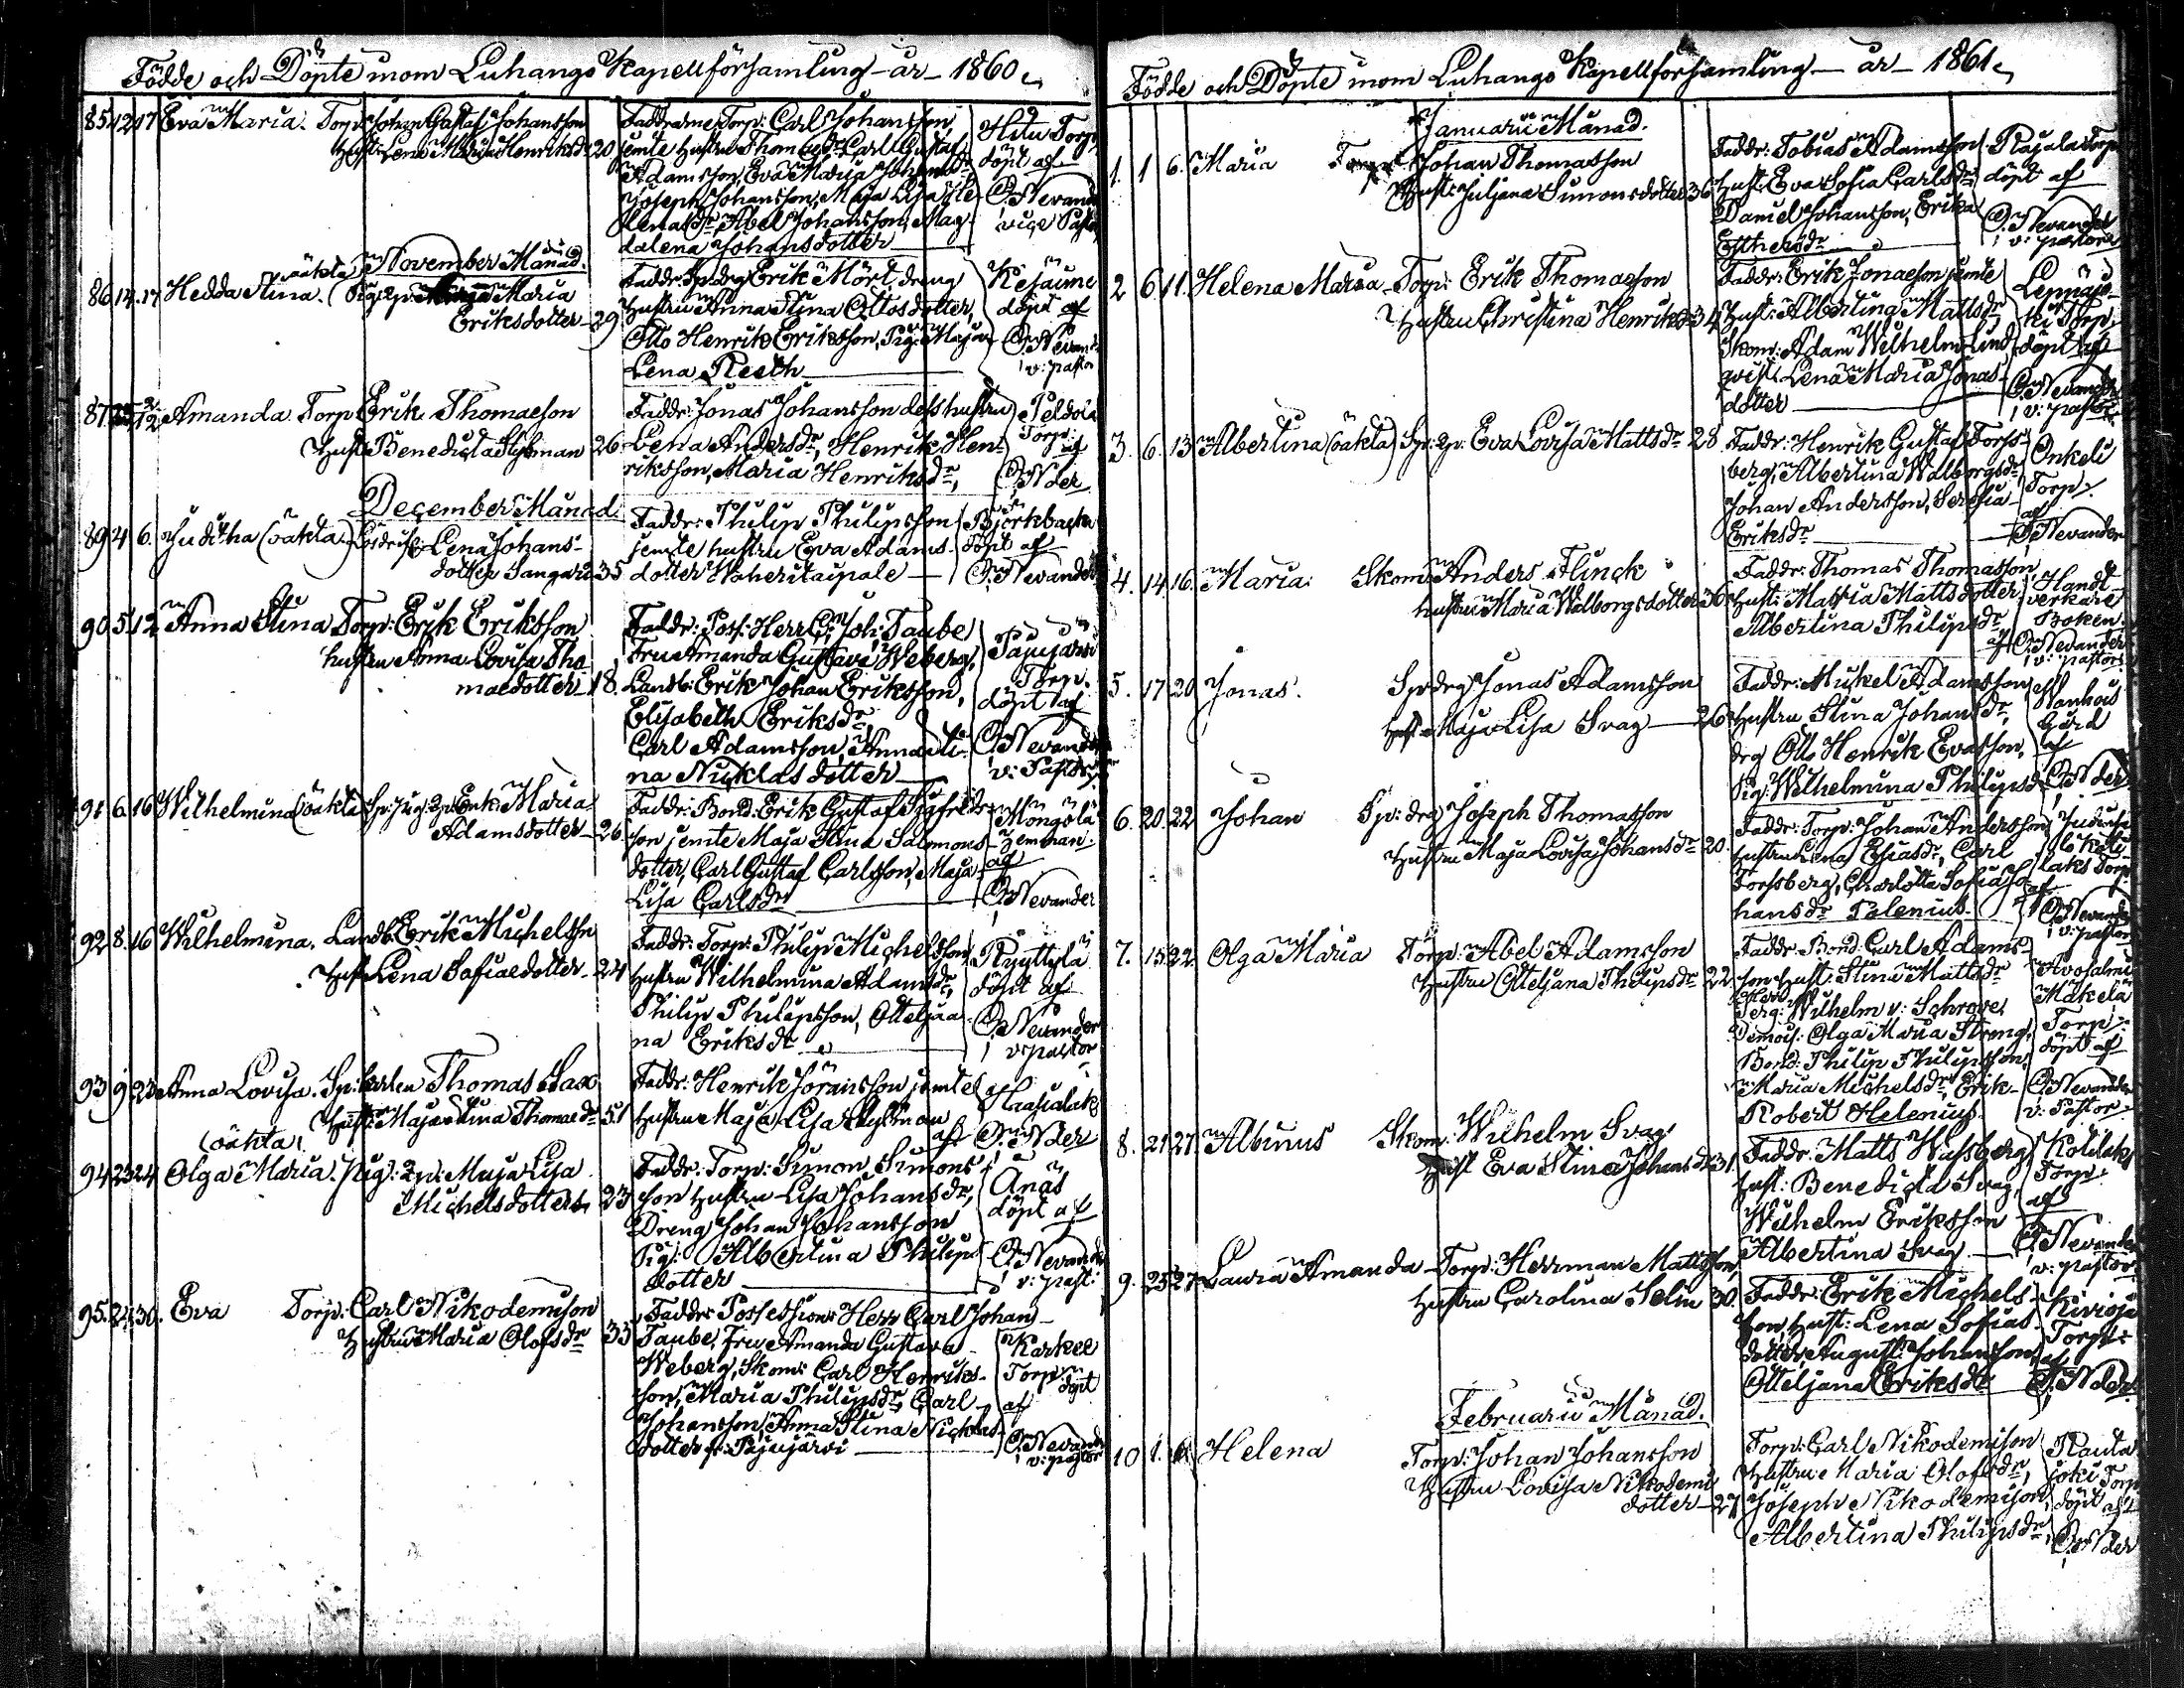 Födde och Döpte inom Luhango Kapellförsamling år 1860
85 12 17 Eva Maria. Torp: Johan Gustaf Johansson
Hust: Lena Maria Henriksdr 20
Faddrarne Torp: Carl Johansson
jemte hustru Thomasdr Carl Gustaf
Adamsson, Eva Maria Johansdr
Joseph Johansson, Maja Lisa
Lenasdr, Abel Johansson, Mag
dalena Johansdotter
Torp
döpt af
O. Nevander
vice Pastor
November Månad.
86 14. 17 Hedda Stina. (oäkta) Maria
Eriksdotter 29
Faddr: Erik Mört dreng
hustru Anna Stina Ottosdotter,
Otto Henrik Eriksson, Pig: Maja
Lena Resth
döpt af
O. Nevander
v: pastor
87. 12 Amanda. Torp: Erik Thomasson
Hust: Benedicta Nyman 26
Faddr: Jonas Johansson dess hustru
Lena Andersdr, Henrik Hen-
riksson, Maria Henriksdr,
Peldola
Torp:
af
O. Nder
December Månad.
89 4 6. Juditha (oäkta) Lena Johans-
dotter Sangari 35
Faddr: Philip Philipsson
jemte hustru Eva Adams-
dotter Waheritaipale
Björkbacka
döpt af
O. Nevander
90 5 12 Anna Stina Torp: Erik Eriksson
hustru Anna Lovisa Tho
masdotter 18.
Faddr: Poss: Herr C: Joh: Taube
Fru Amanda Gustava Weberg,
Landb: Erik Johan Eriksson,
Elisabeth Eriksdr,
Carl Adamsson, Anna Sti-
na Nicklasdotter
Pajujärvi
Torp.
döpt af
O. Nevander
v: Pastor
91 6 16 Wilhelmina (oäkta) Maria
Adamsdotter 26
Faddr: Bond: Erik Gustaf Sigfrids-
son jemte Maja Stina Salomons
dotter, Carl Gustaf Carlsson, Maja
Lisa Carlsdr
Mongola
af
O. Nevander
92 8. 16 Wilhelmina. Landb: Erik Michelson
Hust: Lena Sofiaedotter 24
Faddr: Torp: Philip Michelsson
hustru Wilhelmina Adamsdr,
Philip Philipsson, Otteljaa
na Eriksdr
Ryyttylä
döpt af
O. Nevander
v: pastor
93 9. 23 Anna Lovisa. Thomas Sax
Hust: Maja Stina Thomasdr 51
Faddr: Henrik Göransson jemte
hustru Maja Lisa Nyman
Haajalak
af O. Nder
(oäkta)
94 23 24 Olga Maria. Pig: Maja Lisa
Michelsdotter 23
Faddr: Torp: Simon Simons
son hustru Lisa Johansdr,
Dreng Johan Johansson
Pig: Albertina Philips
dotter
Anäs
döpt af
O. Nevander
v: past:
95. 27. 30. Eva Torp: Carl Nikodemison
Hustru Maria Olofsdr 33
Faddr: Possessions Herr Carl Johan
Taube, Fru Amanda Gustava
Weberg, Skom: Carl Henriks-
son, Maria Philipsdr, Carl
Johansson, Anna Stina Nicklas-
dotter fr: Pajujärvi
Karkee
Torp:
döpt
af
O. Nevander
v: pastor
Födde och Döpte inom Luhango Kapellförsamling år 1861
Januarii Månad.
1. 1 6. Maria Torp: Johan Thomasson
Hust: Juljana Simonsdotter 36
Faddr: Tobias Adamsson
Hust: Eva Sofia Carlsdr
Daniel Johansson, Erika
Esthersdr
Rajala Torp
döpt af
O. Nevander
v: pastor
2 6 11. Helena Maria Torp: Erik Thomasson
Hustru Christina Henriksdr 34
Faddr: Erik Jonasson jemte
Hust: Albertina Mattsdr
Skom: Adam Wilhelm Lind
qvist Lena Maria Jonas-
dotter
Torp:
döpt af
O. Nevander
v: pastor
3. 6. 13 Albertina (oäkta) Eva Lovisa Mattsdr 28
Faddr: Henrik Gustaf Forss-
berg, Albertina Walborgsdr
Johan Andersson, Serafia
Eriksdr
Onkeli
Torp:
af
O. Nevander
4. 14. 16. Maria. Skom: Anders Flinck
hustru Maria Walborgsdotter 36
Faddr: Thomas Thomasson
Hust: Maria Mattsdotter
Albertina Philipsdr
Handt
verkare
Boken.
af O. Nevander
v: pastor
5. 17 20 Jonas. Jonas Adamsson
Hust: Maja Lisa Svag 26
Faddr: Mickel Adamsson
hustru Stina Johansdr,
drg Otto Henrik Evasson,
Pig: Wilhelmina Philipsdr
Wanhois
Gård
af
O. Nder
6. 20. 22 Johan Joseph Thomasson
Hustru Maja Lovisa Johansdr 20.
Faddr: Torp: Johan Andersson
hustru Lena Esiasdr, Carl
Forssberg, Charlotta Sofia Jo-
hansdr Palenius
laks Torp
af
O. Nevander
v: pastor
7. 15 22. Olga Maria Torp: Abel Adamsson
Hustru Otteljana Philipsdr 22.
Faddr: Bond: Carl Adams-
son Hust: Stina Mattsdr
Wilhelm v: Schrove,
Demois: Olga Maria Streng,
Bond: Philip Philipsson,
Maria Michelsdr, Erik
Robert Helenius
Avosalmi
Mäkelä
Torp:
döpt af
O. Nevander
v: Pastor
8. 21 27. Albinus Skom: Wilhelm Svag
Hust Eva Stina Johansdr 31.
Faddr: Matts Walsberg,
Hust: Benedicta Svag,
Wilhelm Eriksson
Albertina Svag
Kotilaks
Torp:
af
O. Nevander
v: pastor
9. 25 27 Laura Amanda Torp: Herrman Mattsson,
Hustru Carolina Selin 30.
Faddr: Erik Michels-
son, Hust: Lena Sofias-
dotter, August Johansson,
Otteljana Eriksdr
Kivioja
Torp:
af
O. Nder
Februarii Månad.
10 1. Helena Torp: Johan Johansson
Hustru Lovisa Nikodemi
dotter 27
Torp: Carl Nikodemison
Hustru Maria Olofsdr,
Joseph Nikodemison,
Albertina Philipsdr
Rauta
joki Torp
döpt af
O. Nder